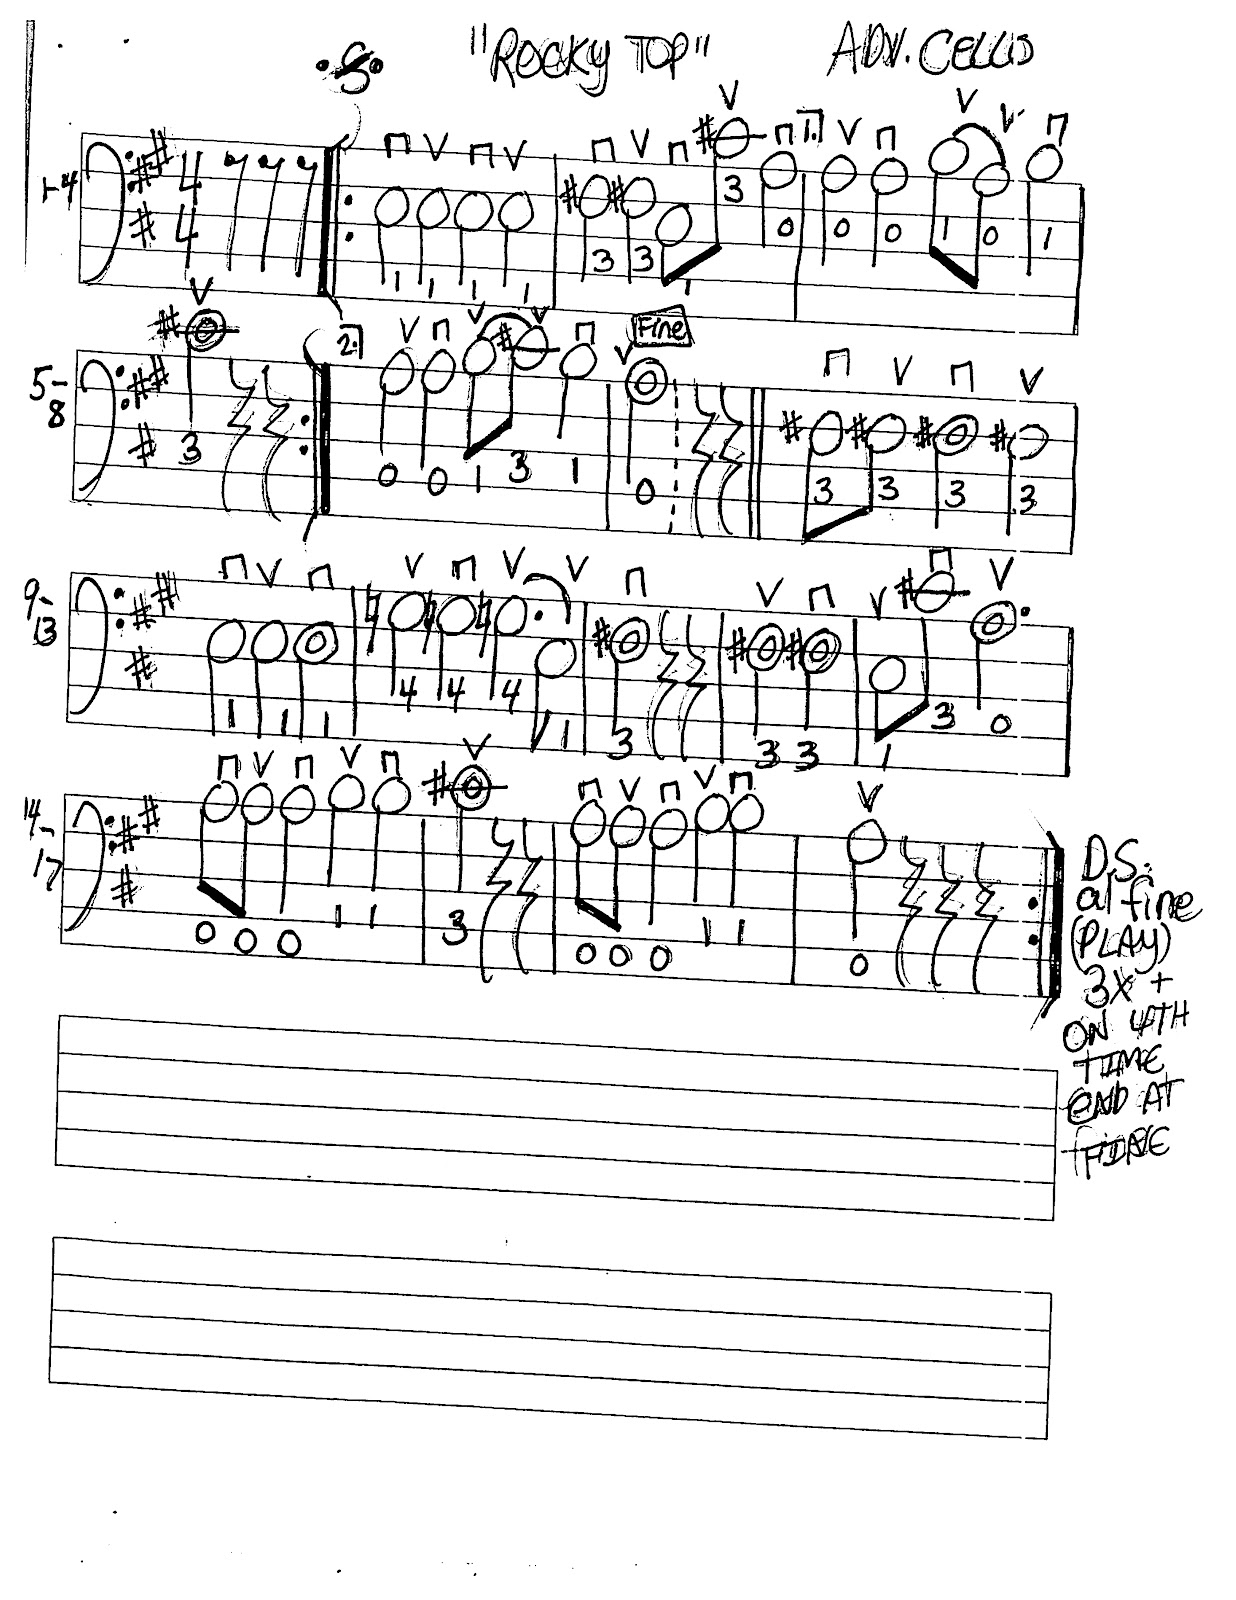 "ROCKY TOP" ADV. CELLIS
1.
1-4
4
4
3 0 0 0 1 0 1
1 1 1 1 3 3 1
2. Fine
5-
8
3 0 0 1 3 1 0 3 3 3 3
9-
13
1 1 1 4 4 4 1 3 3 3 1 3 0
14-
17
0 0 0 1 1 3 0 0 0 1 1 0
D.S.
al fine
(PLAY)
3x +
ON 4TH
TIME
END AT
FINE